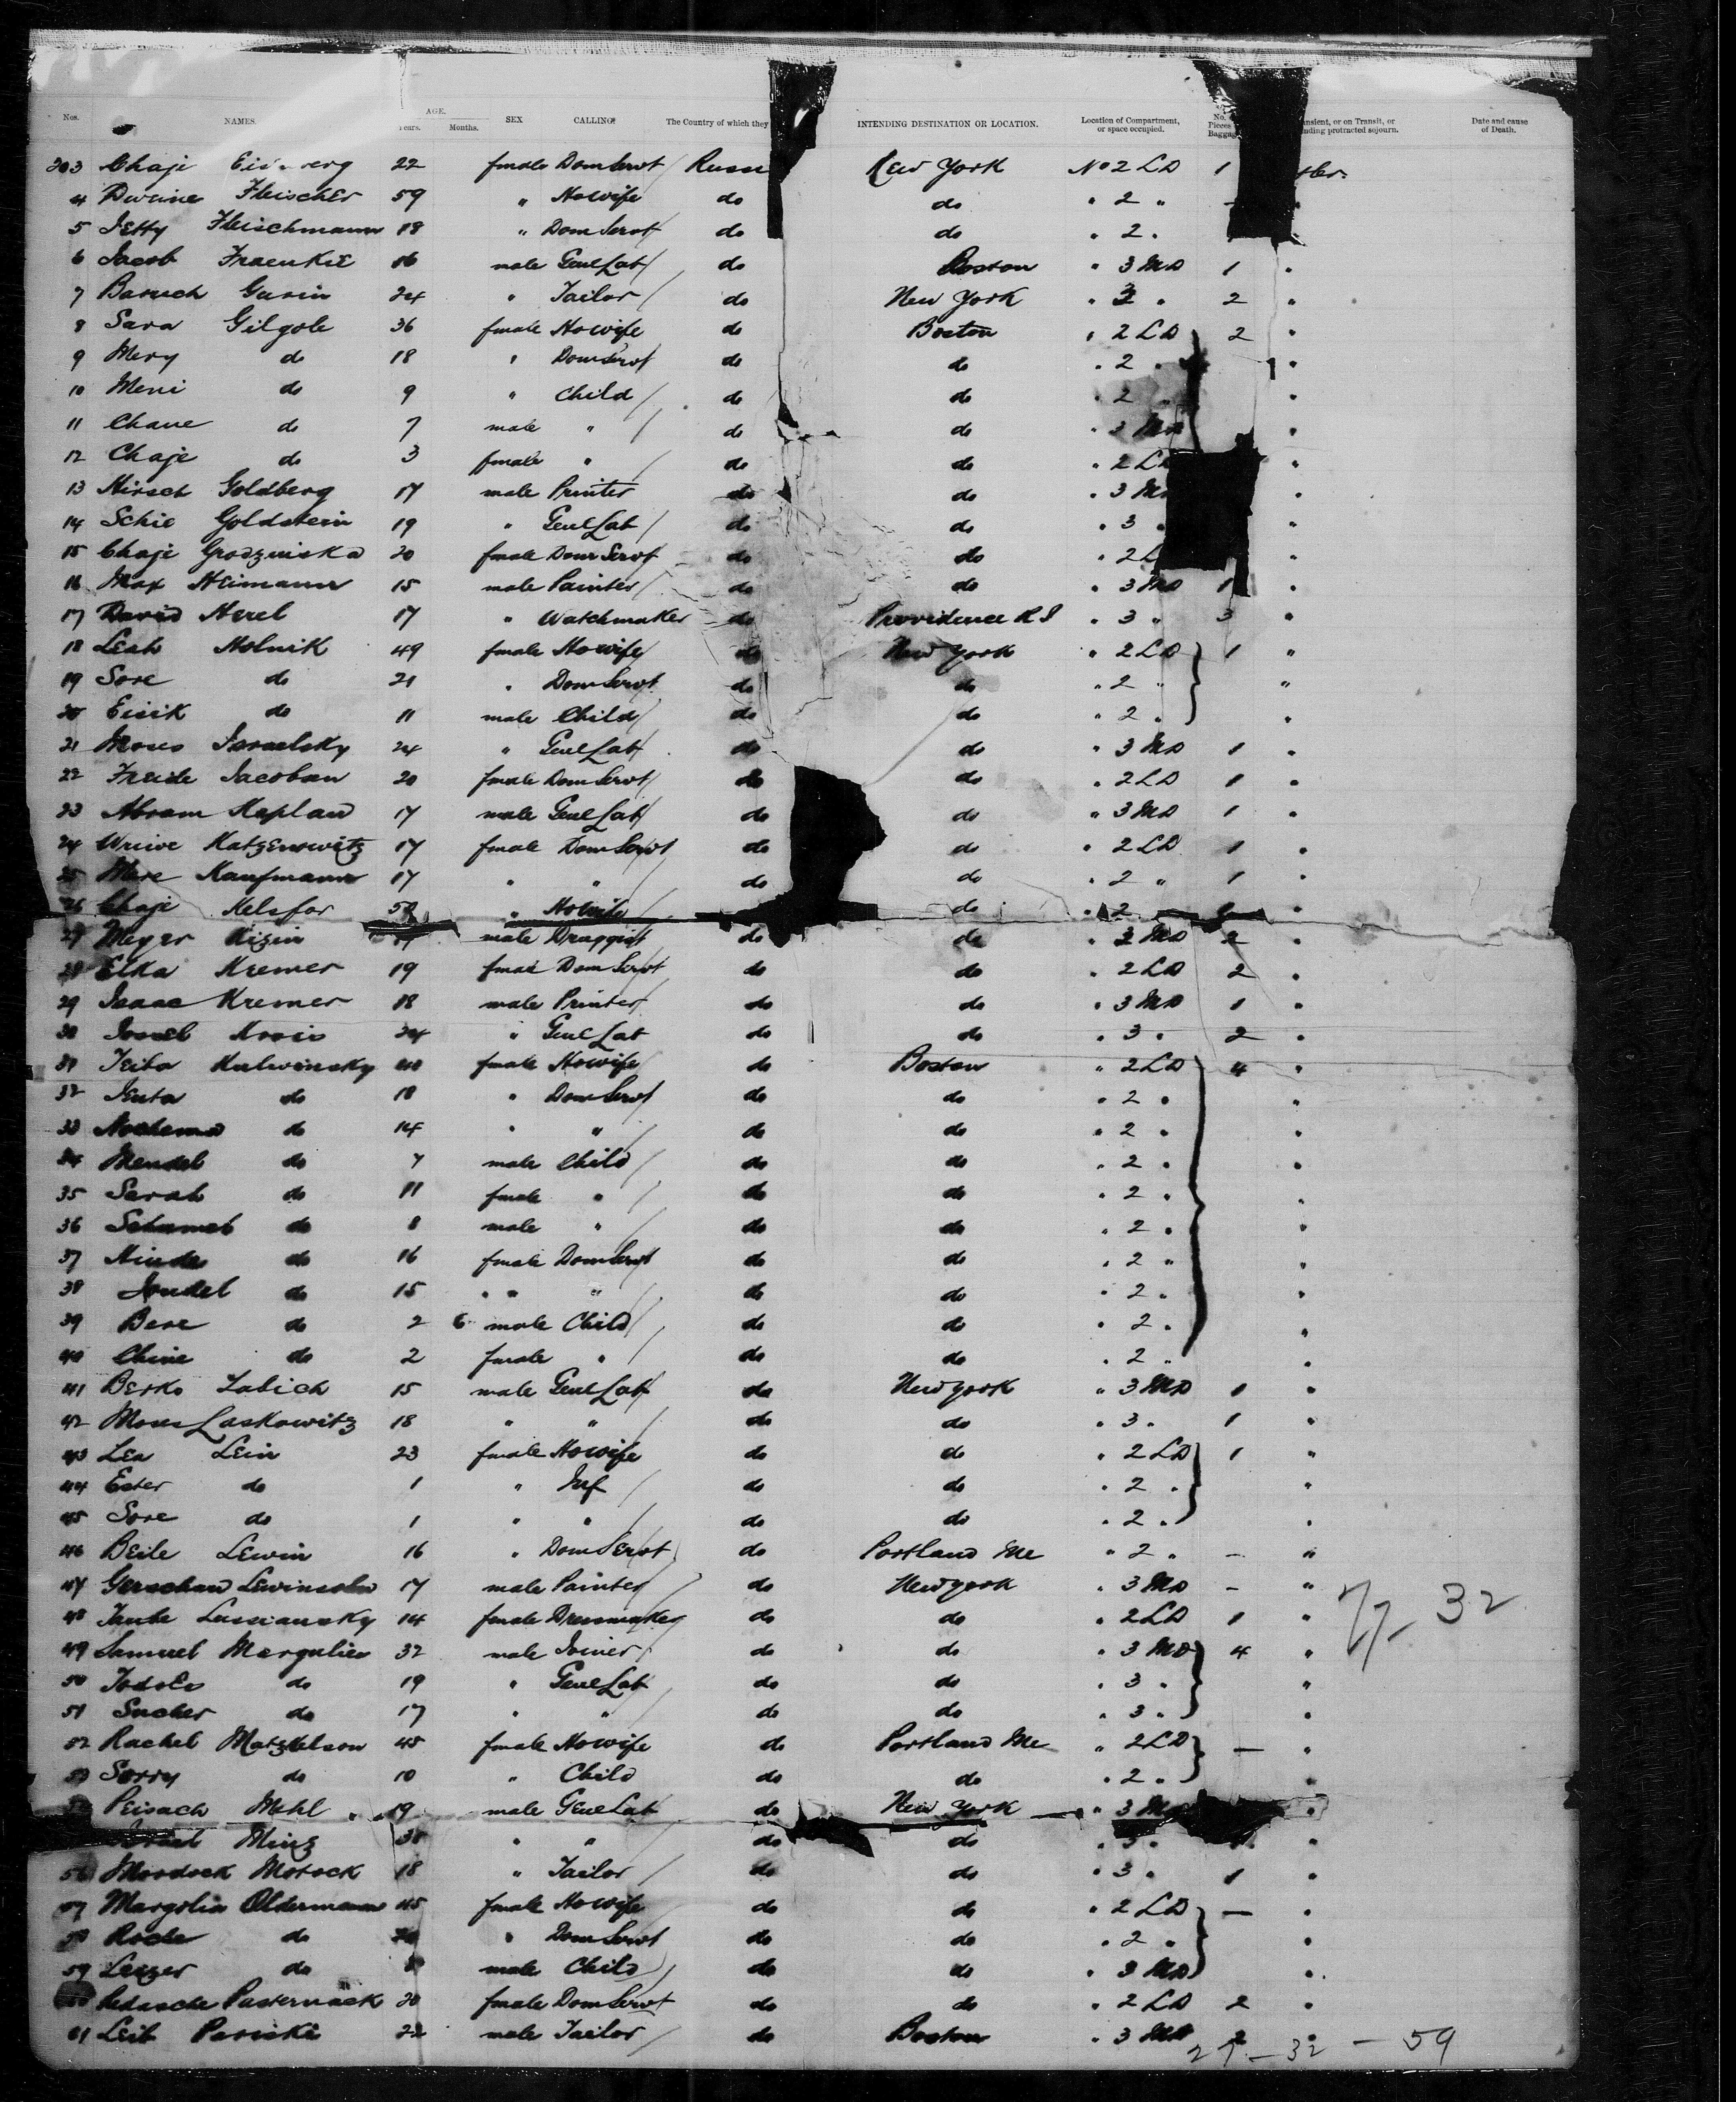 Nos. NAMES. AGE. Years. Months. SEX CALLING The Country of which they INTENDING DESTINATION OR LOCATION. Location of Compartment, or space occupied. No. Pieces Baggage Transient, or on Transit, or intending protracted sojourn. Date and cause of Death.
303 Chaje 22 female Dom Servt Russ New York No 2 LD 1
4 Dweine Fleischer 59 " Howife do do " 2 "
5 Jetty Fleischmann 18 " Dom Servt do do " 2 "
6 Jacob Fraenkel 16 male Genl Lab do Boston " 3 MD 1 "
7 Baruch Gurin 24 " Tailor do New York " 3 " 2 "
8 Sara Gilgole 36 female Howife do Boston " 2 LD 2 "
9 Mery do 18 " Dom Servt do do " 2 " "
10 Meni do 9 " Child do do " 2 " "
11 Chane do 7 male " do do " 3 MD "
12 Chaje do 3 female " do do " 2 LD "
13 Hirsch Goldberg 17 male Printer do do " 3 MD "
14 Schie Goldstein 19 " Genl Lab do do " 3 "
15 Chaje Grodzinska 20 female Dom Servt do do " 2 L "
16 Max Heimann 15 male Painter do do " 3 MD 1 "
17 David Herel 17 " Watchmaker do Providence R I " 3 " 3 "
18 Leah Holnik 49 female Howife do New York " 2 LD 1 "
19 Sore do 21 " Dom Servt do do " 2 " "
20 Eisik do 11 male Child do do " 2 " "
21 Moses Israelsky 24 " Genl Lab do do " 3 MD 1 "
22 Freide Jacobson 20 female Dom Servt do do " 2 LD 1 "
23 Abram Kaplan 17 male Genl Lab do do " 3 MD 1 "
24 Wriwe Katzenowitz 17 female Dom Servt do do " 2 LD 1 "
25 Mere Kaufmann 17 " " do do " 2 " 1 "
26 Chaje Kelsfor " Howife do " 2 "
27 Meyer Kizin male Druggist do do " 3 MD 2 "
28 Elka Kremer 19 female Dom Servt do do " 2 LD 2 "
29 Isaac Kremer 18 male Printer do do " 3 MD 1 "
30 Krois 34 " Genl Lab do do " 3 " 2 "
31 Teiba Kulwinsky 40 female Howife do Boston " 2 LD 4 "
32 Jenta do 18 " Dom Servt do do " 2 " "
33 Nochema do 14 " " do do " 2 " "
34 Mendel do 7 male Child do do " 2 " "
35 Sarah do 11 female " do do " 2 " "
36 Schamel do 8 male " do do " 2 " "
37 Hinde do 16 female Dom Servt do do " 2 " "
38 Joudel do 15 " " " do do " 2 " "
39 Bere do 2 6 male Child do do " 2 " "
40 Chine do 2 female " do do " 2 " "
41 Berko Labich 15 male Genl Lab do New York " 3 MD 1 "
42 Moses Laskowitz 18 " " do do " 3 " 1 "
43 Lea Lein 23 female Howife do do " 2 LD 1 "
44 Ester do 1 " Inf do do " 2 " "
45 Sore do 1 " " do do " 2 " "
46 Beile Lewin 16 " Dom Servt do Portland Me " 2 " — "
47 Gerschan Lewinsohn 17 male Painter do New York " 3 MD — "
48 Taube Lassiansky 14 female Dressmaker do do " 2 LD 1 " 27 - 32
49 Samuel Margulies 32 male Joiner do do " 3 MD 4 "
50 do 19 " Genl Lab do do " 3 " "
51 Sucher do 17 " " do do " 3 " "
52 Rachel Matzkelson 45 female Howife do Portland Me " 2 LD — "
53 Sorry do 10 " Child do do " 2 " "
Peisach Mehl 19 male Genl Lab do New York " 3 MD "
Minz 38 " " do do " 3 " "
56 Mordock Motock 18 " Tailor do do " 3 " 1 "
57 Margolin Oldermann 45 female Howife do do " 2 LD — "
58 Rode do " Dom Servt do do " 2 " "
59 Leizer do male Child do do " 3 MD "
Pasternack 20 female Dom Servt do do " 2 LD 2 "
61 Leib Pariski 22 male Tailor do Boston " 3 MD 2 "
27 - 32 - 59